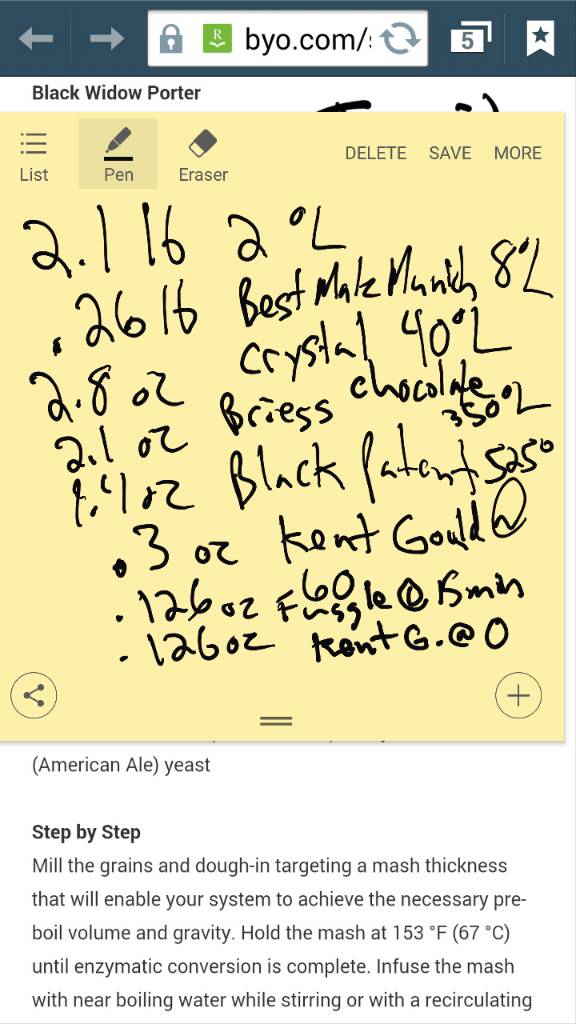 byo.com/
5
Black Widow Porter
List
Pen
Eraser
DELETE SAVE MORE
2.1 lb 2 °L
.26 lb Best Malz Munich 8°L
2.8 oz crystal 40°L
2.1 oz Briess chocolate 350°L
1.4 oz Black Patent 525°
.3 oz Kent Gould @
60
.126 oz Fuggle @ 15min
.126 oz Kent G. @ 0
(American Ale) yeast
Step by Step
Mill the grains and dough-in targeting a mash thickness
that will enable your system to achieve the necessary pre-
boil volume and gravity. Hold the mash at 153 °F (67 °C)
until enzymatic conversion is complete. Infuse the mash
with near boiling water while stirring or with a recirculating